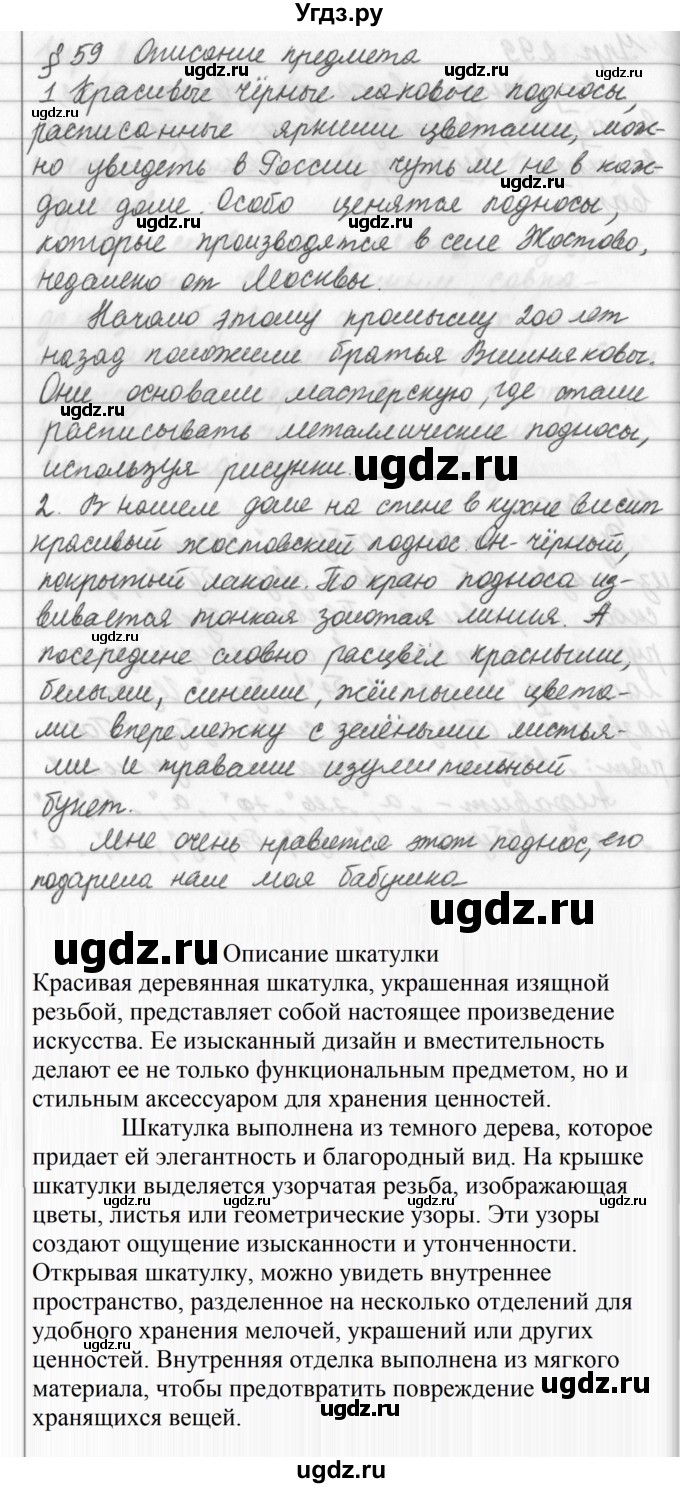 Угдз.ру
§ 59 Описание предмета
1 Красивые чёрные лаковые подносы,
расписанные яркими цветами, мож-
но увидеть в России чуть ли не в каж-
дом доме. Особо ценятся подносы,
которые производятся в селе Жостово,
недалеко от Москвы.
Начало этому промыслу 200 лет
назад положили братья Вишняковы.
Они основали мастерскую, где стали
расписывать металлические подносы,
используя рисунки.
2. В нашем доме на стене в кухне висит
красивый жостовский поднос. Он - чёрный,
покрытый лаком. По краю подноса из-
вивается тонкая золотая линия. А
посередине словно расцвёл красными,
белыми, синими, жёлтыми цвета-
ми вперемежку с зелёными листья-
ми и травами изумительный
букет.
Мне очень нравится этот поднос, его
подарила нам моя бабушка
Описание шкатулки
Красивая деревянная шкатулка, украшенная изящной
резьбой, представляет собой настоящее произведение
искусства. Ее изысканный дизайн и вместительность
делают ее не только функциональным предметом, но и
стильным аксессуаром для хранения ценностей.
Шкатулка выполнена из темного дерева, которое
придает ей элегантность и благородный вид. На крышке
шкатулки выделяется узорчатая резьба, изображающая
цветы, листья или геометрические узоры. Эти узоры
создают ощущение изысканности и утонченности.
Открывая шкатулку, можно увидеть внутреннее
пространство, разделенное на несколько отделений для
удобного хранения мелочей, украшений или других
ценностей. Внутренняя отделка выполнена из мягкого
материала, чтобы предотвратить повреждение
хранящихся вещей.
ugdz.ru